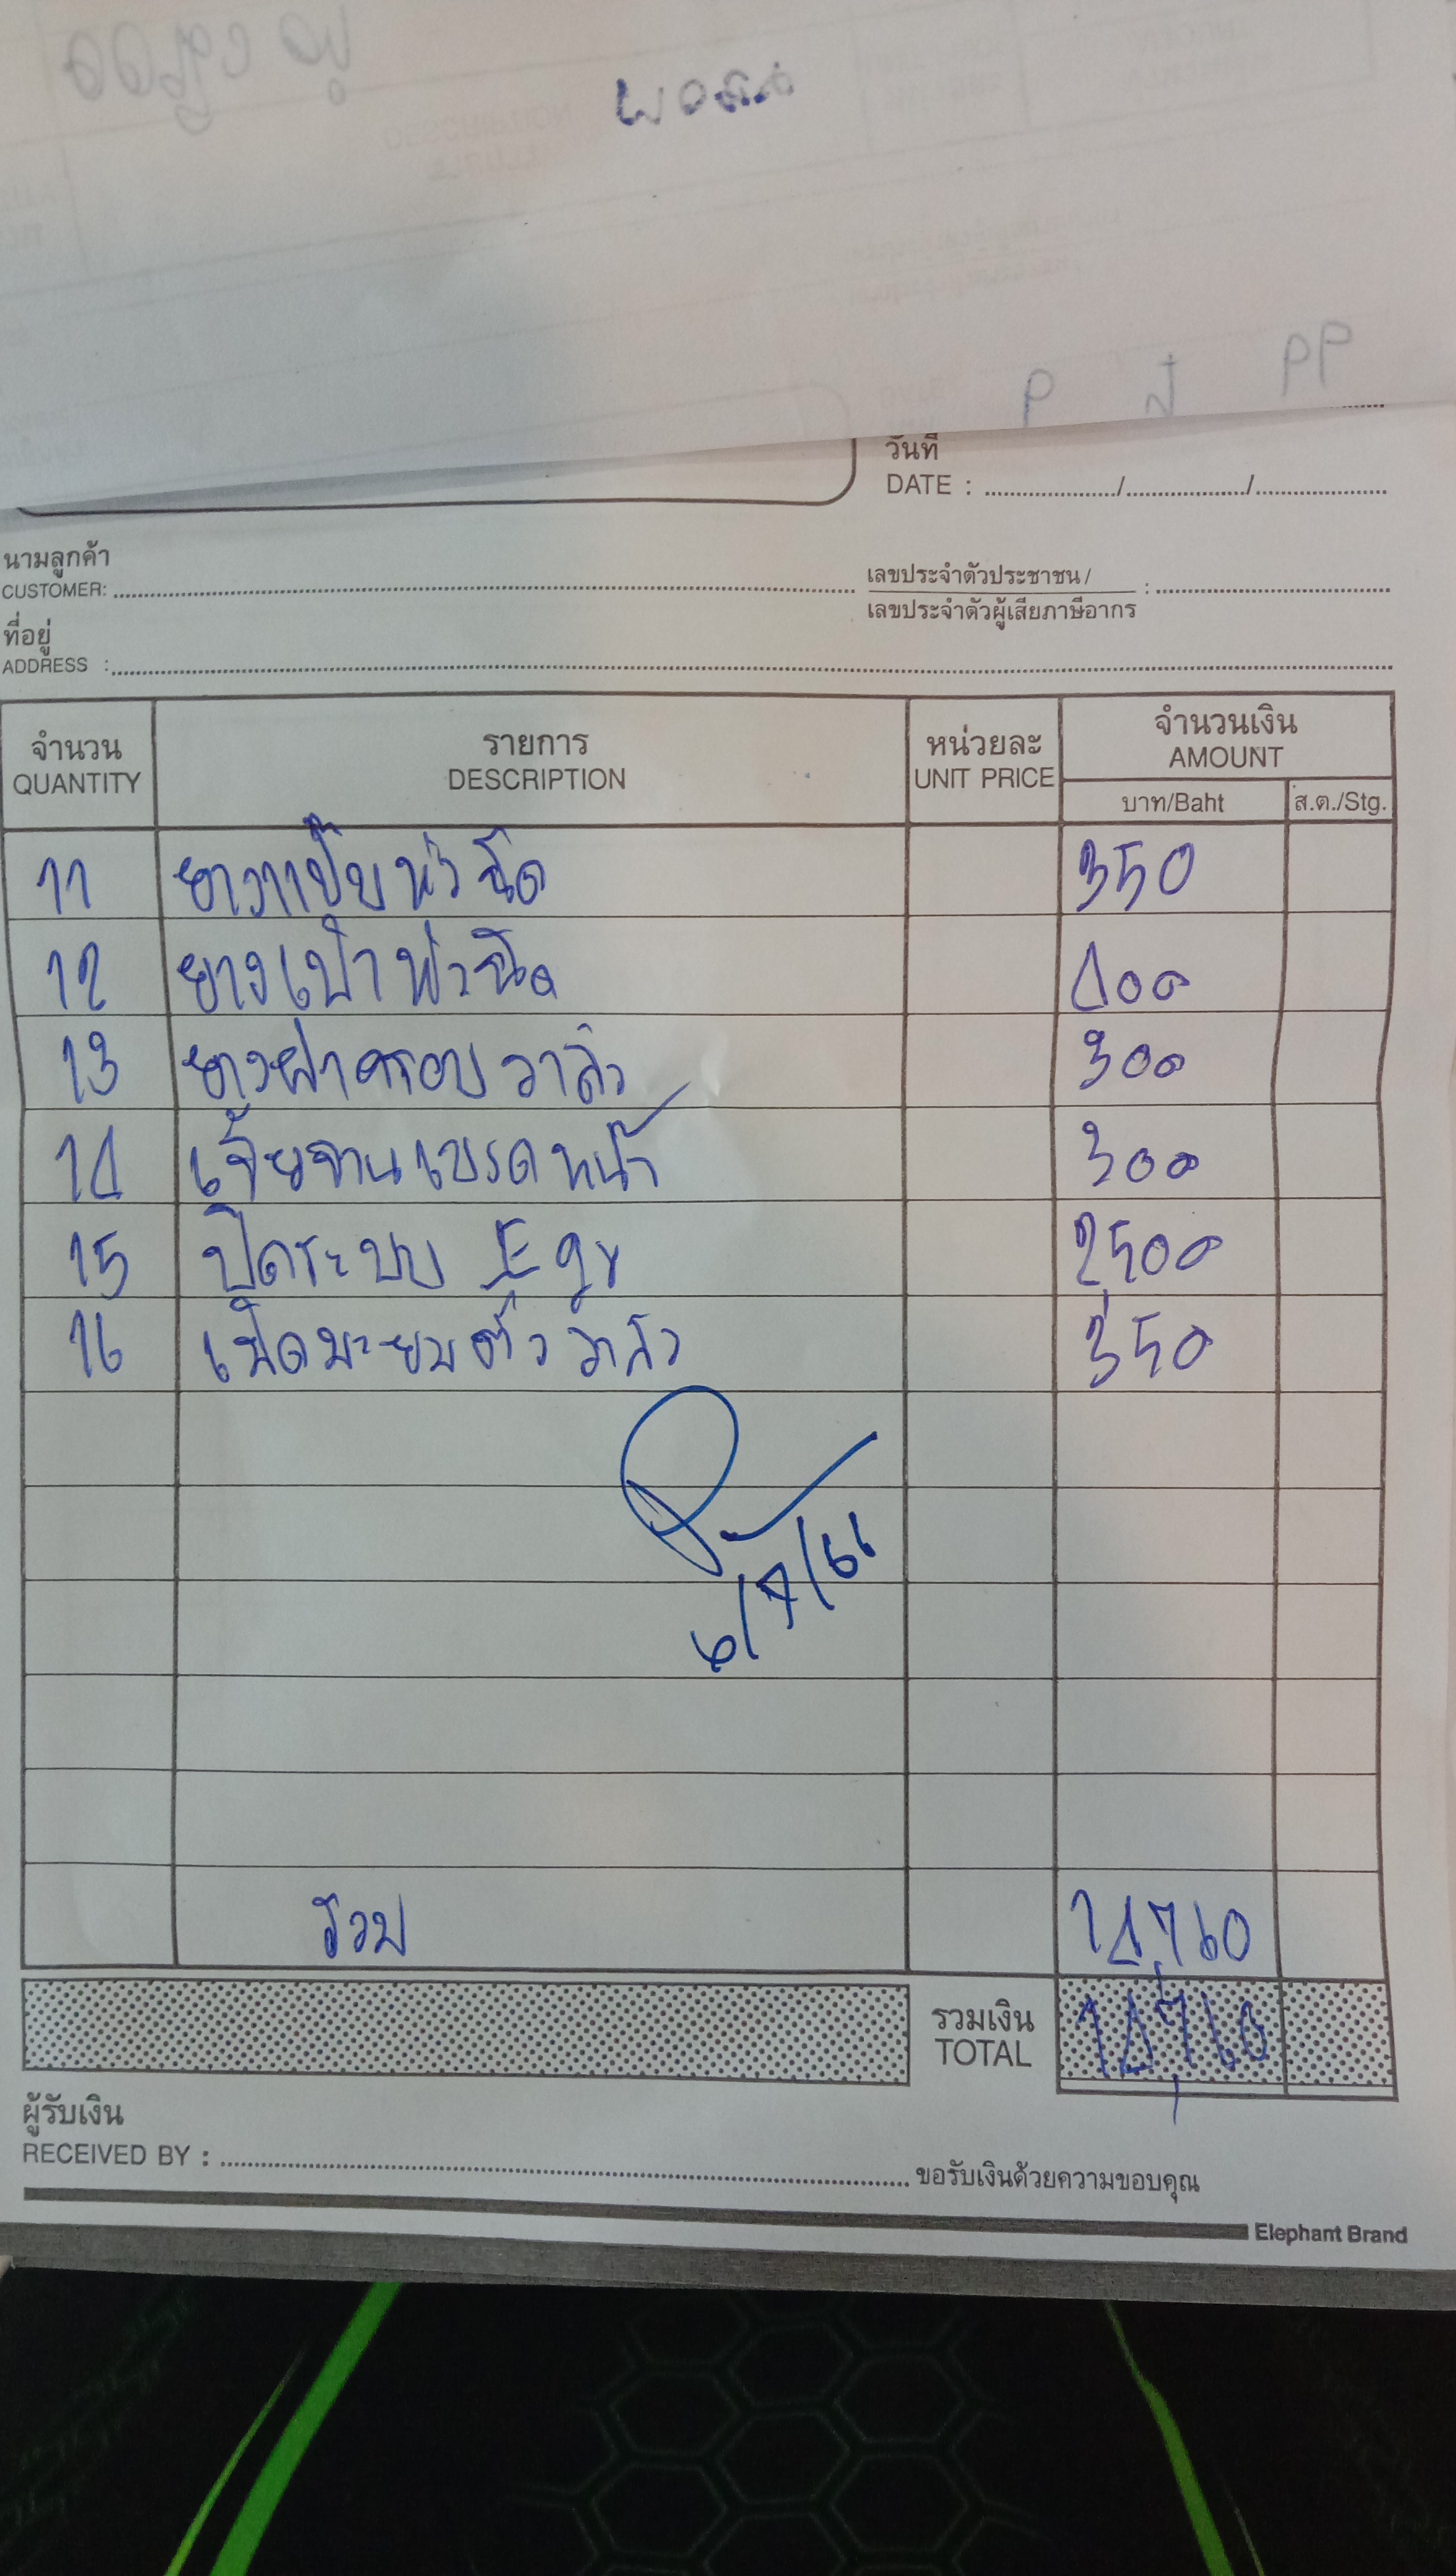 วันที่
DATE : ...................../..................../.....................
นามลูกค้า
CUSTOMER:
เลขประจำตัวประชาชน/
เลขประจำตัวผู้เสียภาษีอากร :
ที่อยู่
ADDRESS :
จำนวน รายการ หน่วยละ จำนวนเงิน
QUANTITY DESCRIPTION UNIT PRICE AMOUNT
บาท/Baht ส.ต./Stg.
11 ยางแป๊บหัวฉีด 350
12 ยางเบ้าหัวฉีด 400
13 ยางฝาครอบวาล์ว 300
14 เจียจานเบรคหน้า 300
15 ปิดระบบ Egr 2500
16 เม็ดมะยมตั้งวาล์ว 350
6/7/66
รวม 14,760
รวมเงิน
TOTAL 14,760
ผู้รับเงิน
RECEIVED BY : ขอรับเงินด้วยความขอบคุณ
Elephant Brand